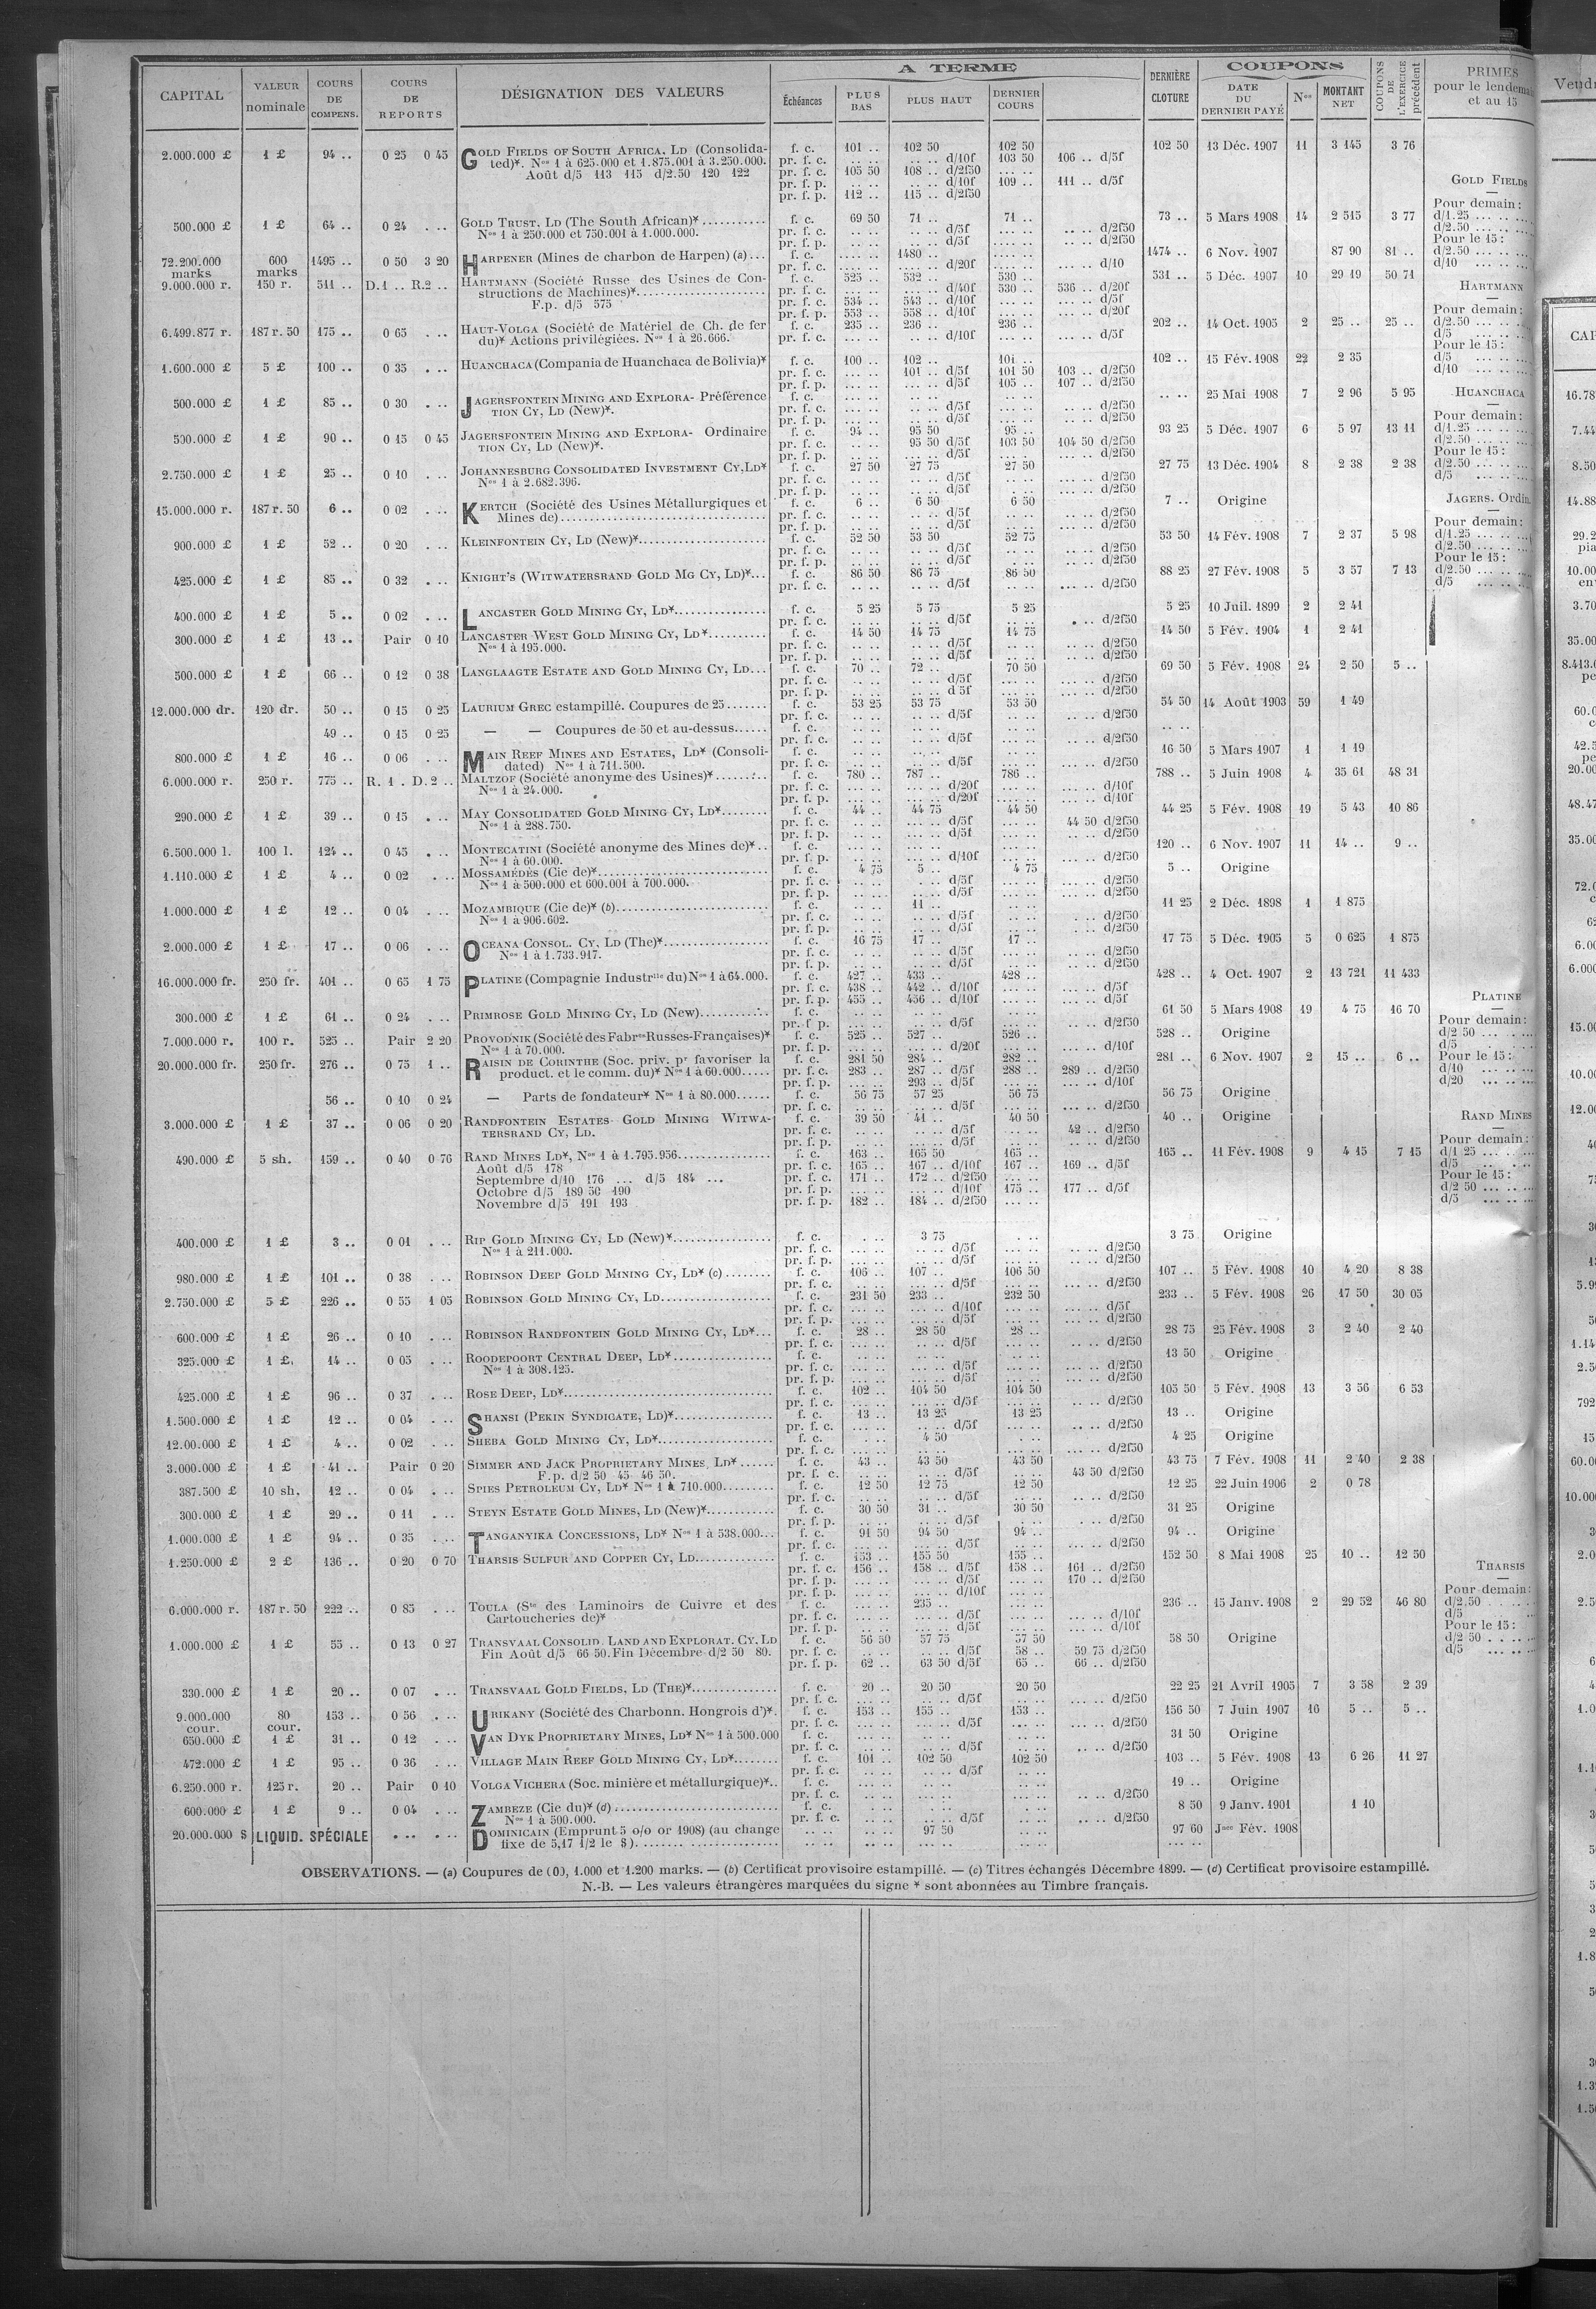 CAPITAL | VALEUR nominale | COURS DE COMPENS. | COURS DE REPORTS | DÉSIGNATION DES VALEURS | A TERME | Échéances | PLUS BAS | PLUS HAUT | DERNIER COURS | DERNIÈRE CLOTURE | COUPONS | DATE DU DERNIER PAYÉ | Nos | MONTANT NET | COUPONS DE L'EXERCICE précédent | PRIMES pour le lendemain et au 15
2.000.000 £ 1 £ 94 .. 0 25 0 45 GOLD FIELDS OF SOUTH AFRICA, LD (Consolida- f. c. 101 .. 102 50 102 50 102 50 13 Déc. 1907 11 3 145 3 76
ted)*. Nos 1 à 625.000 et 1.875.001 à 3.250.000. pr. f. c. .. .. .. .. d/10f 103 50 106 .. d/5f
Août d/5 113 115 d/2.50 120 122 pr. f. c. 105 50 108 .. d/2f50
pr. f. p. .. .. .. .. d/10f 109 .. 111 .. d/5f
pr. f. p. 112 .. 115 .. d/2f50
500.000 £ 1 £ 64 .. 0 24 . .. GOLD TRUST, LD (The South African)* f. c. 69 50 71 .. 71 .. 73 .. 5 Mars 1908 14 2 515 3 77
Nos 1 à 250.000 et 750.001 à 1.000.000. pr. f. c. d/5f d/2f50
pr. f. p. d/5f d/2f50
72.200.000 marks 600 marks 1495 .. 0 50 3 20 HARPENER (Mines de charbon de Harpen) (a) f. c. 1480 .. 1474 .. 6 Nov. 1907 87 90 81 ..
pr. f. c. d/20f d/10
9.000.000 r. 150 r. 511 .. D.1 .. R.2 .. HARTMANN (Société Russe des Usines de Con- f. c. 525 .. 532 .. 530 .. 531 .. 5 Déc. 1907 10 29 19 50 71
structions de Machines)* pr. f. c. d/40f 530 .. 536 .. d/20f
F.p. d/5 575 pr. f. c. 534 .. 543 .. d/10f d/5f
pr. f. p. 553 .. 558 .. d/10f d/20f
6.499.877 r. 187 r. 50 175 .. 0 65 . .. HAUT-VOLGA (Société de Matériel de Ch. de fer f. c. 235 .. 236 .. 236 .. 202 .. 14 Oct. 1905 2 25 .. 25 ..
du)* Actions privilégiées. Nos 1 à 26.666. pr. f. c. d/10f d/5f
1.600.000 £ 5 £ 100 .. 0 35 . .. HUANCHACA (Compania de Huanchaca de Bolivia)* f. c. 100 .. 102 .. 101 .. 102 .. 15 Fév. 1908 22 2 35
pr. f. c. 101 .. d/5f 101 50 103 .. d/2f50
pr. f. p. d/5f 105 .. 107 .. d/2f50
500.000 £ 1 £ 85 .. 0 30 . .. JAGERSFONTEIN MINING AND EXPLORA- Préférence f. c. 25 Mai 1908 7 2 96 5 95
TION CY, LD (New)*. pr. f. c. d/5f d/2f50
pr. f. p. d/5f d/2f50
500.000 £ 1 £ 90 .. 0 15 0 45 JAGERSFONTEIN MINING AND EXPLORA- Ordinaire f. c. 94 .. 95 50 95 .. 93 25 5 Déc. 1907 6 5 97 13 11
TION CY, LD (New)*. pr. f. c. 95 50 d/5f 103 50 104 50 d/2f50
pr. f. p. d/5f d/2f50
2.750.000 £ 1 £ 25 .. 0 10 . .. JOHANNESBURG CONSOLIDATED INVESTMENT CY, LD* f. c. 27 50 27 75 27 50 27 75 13 Déc. 1904 8 2 38 2 38
Nos 1 à 2.682.396. pr. f. c. d/5f d/2f50
pr. f. p. d/5f d/2f50
15.000.000 r. 187 r. 50 6 .. 0 02 . .. KERTCH (Société des Usines Métallurgiques et f. c. 6 .. 6 50 6 50 7 .. Origine
Mines de) pr. f. c. d/5f d/2f50
pr. f. p. d/5f d/2f50
900.000 £ 1 £ 52 .. 0 20 . .. KLEINFONTEIN CY, LD (New)* f. c. 52 50 53 50 52 75 53 50 14 Fév. 1908 7 2 37 5 98
pr. f. c. d/5f d/2f50
pr. f. p. d/5f d/2f50
425.000 £ 1 £ 85 .. 0 32 . .. KNIGHT'S (WITWATERSRAND GOLD MG CY, LD)* f. c. 86 50 86 75 86 50 88 25 27 Fév. 1908 5 3 57 7 13
pr. f. c. d/5f d/2f50
400.000 £ 1 £ 5 .. 0 02 . .. LANCASTER GOLD MINING CY, LD* f. c. 5 25 5 75 5 25 5 25 10 Juil. 1899 2 2 41
pr. f. c. d/5f d/2f50
300.000 £ 1 £ 13 .. Pair 0 10 LANCASTER WEST GOLD MINING CY, LD* f. c. 14 50 14 75 14 75 14 50 5 Fév. 1904 1 2 41
Nos 1 à 195.000. pr. f. c. d/5f d/2f50
pr. f. p. d/5f d/2f50
500.000 £ 1 £ 66 .. 0 12 0 38 LANGLAAGTE ESTATE AND GOLD MINING CY, LD f. c. 70 .. 72 .. 70 50 69 50 5 Fév. 1908 24 2 50 5 ..
pr. f. c. d/5f d/2f50
pr. f. p. d 5f d/2f50
12.000.000 dr. 120 dr. 50 .. 0 15 0 25 LAURIUM GREC estampillé. Coupures de 25 f. c. 53 25 53 75 53 50 54 50 14 Août 1903 59 1 49
pr. f. c. d/5f d/2f50
49 .. 0 15 0 25 — — Coupures de 50 et au-dessus f. c.
pr. f. c. d/5f d/2f50
800.000 £ 1 £ 16 .. 0 06 . .. MAIN REEF MINES AND ESTATES, LD* (Consoli- f. c. 16 50 5 Mars 1907 1 1 19
dated) Nos 1 à 711.500. pr. f. c. d/5f d/2f50
6.000.000 r. 250 r. 775 .. R. 1 . D.2 .. MALTZOF (Société anonyme des Usines)* f. c. 780 .. 787 .. 786 .. 788 .. 5 Juin 1908 4 35 61 48 31
Nos 1 à 24.000. pr. f. c. d/20f d/10f
pr. f. p. d/20f d/10f
290.000 £ 1 £ 39 .. 0 15 . .. MAY CONSOLIDATED GOLD MINING CY, LD* f. c. 44 .. 44 75 44 50 44 25 5 Fév. 1908 19 5 43 10 86
Nos 1 à 288.750. pr. f. c. d/5f 44 50 d/2f50
pr. f. p. d/5f d/2f50
6.500.000 l. 100 l. 124 .. 0 45 . .. MONTECATINI (Société anonyme des Mines de)* f. c. 120 .. 6 Nov. 1907 11 14 .. 9 ..
Nos 1 à 60.000. pr. f. p. d/10f d/2f50
1.110.000 £ 1 £ 4 .. 0 02 . .. MOSSAMÉDÈS (Cie de)* f. c. 4 75 5 .. 4 75 5 .. Origine
Nos 1 à 500.000 et 600.001 à 700.000. pr. f. c. d/5f d/2f50
pr. f. p. d/5f d/2f50
1.000.000 £ 1 £ 12 .. 0 04 . .. MOZAMBIQUE (Cie de)* (b) f. c. 11 .. 11 25 2 Déc. 1898 1 1 875
Nos 1 à 906.602. pr. f. c. d/5f d/2f50
pr. f. p. d/5f d/2f50
2.000.000 £ 1 £ 17 .. 0 06 . .. OCEANA CONSOL. CY, LD (The)* f. c. 16 75 17 .. 17 .. 17 75 5 Déc. 1905 5 0 625 1 875
Nos 1 à 1.733.917. pr. f. c. d/5f d/2f50
pr. f. p. d/5f d/2f50
16.000.000 fr. 250 fr. 401 .. 0 65 1 75 PLATINE (Compagnie Industrlle du) Nos 1 à 64.000. f. c. 427 .. 433 .. 428 .. 428 .. 4 Oct. 1907 2 13 721 11 433
pr. f. c. 438 .. 442 .. d/10f d/5f
pr. f. p. 455 .. 456 .. d/10f d/5f
300.000 £ 1 £ 61 .. 0 24 . .. PRIMROSE GOLD MINING CY, LD (New) f. c. 61 50 5 Mars 1908 19 4 75 16 70
pr. f p. d/5f d/2f50
7.000.000 r. 100 r. 525 .. Pair 2 20 PROVODNIK (Société des Fabres Russes-Françaises)* f. c. 525 .. 527 .. 526 .. 528 .. Origine
Nos 1 à 70.000. pr. f. p. d/20f d/10f
20.000.000 fr. 250 fr. 276 .. 0 75 1 .. RAISIN DE CORINTHE (Soc. priv. pr favoriser la f. c. 281 50 284 .. 282 .. 281 .. 6 Nov. 1907 2 15 .. 6 ..
product. et le comm. du)* Nos 1 à 60.000 pr. f. c. 283 .. 287 .. d/5f 288 .. 289 .. d/2f50
pr. f. p. 293 .. d/5f d/10f
56 .. 0 10 0 24 — Parts de fondateur* Nos 1 à 80.000 f. c. 56 75 57 25 56 75 56 75 Origine
pr. f. c. d/5f d/2f50
3.000.000 £ 1 £ 37 .. 0 06 0 20 RANDFONTEIN ESTATES GOLD MINING WITWA- f. c. 39 50 41 .. 40 50 40 .. Origine
TERSRAND CY, LD. pr. f. c. d/5f 42 .. d/2f50
pr. f. p. d/5f d/2f50
490.000 £ 5 sh. 159 .. 0 40 0 76 RAND MINES LD*, Nos 1 à 1.795.956 f. c. 163 .. 165 50 165 .. 165 .. 11 Fév. 1908 9 4 15 7 15
Août d/5 178 pr. f. c. 165 .. 167 .. d/10f 167 .. 169 .. d/5f
Septembre d/10 176 ... d/5 184 ... pr. f. c. 171 .. 172 .. d/2f50
Octobre d/5 189 50 190 pr. f. p. d/10f 175 .. 177 .. d/5f
Novembre d/5 191 193 pr. f. p. 182 .. 184 .. d/2f50
400.000 £ 1 £ 3 .. 0 01 . .. RIP GOLD MINING CY, LD (New)* f. c. 3 75 3 75 Origine
Nos 1 à 211.000. pr. f. c. d/5f d/2f50
pr. f. p. d/5f d/2f50
980.000 £ 1 £ 101 .. 0 38 . .. ROBINSON DEEP GOLD MINING CY, LD* (c) f. c. 106 .. 107 .. 106 50 107 .. 5 Fév. 1908 10 4 20 8 38
pr. f. c. d/5f d/2f50
2.750.000 £ 5 £ 226 .. 0 55 1 05 ROBINSON GOLD MINING CY, LD f. c. 231 50 233 .. 232 50 233 .. 5 Fév. 1908 26 17 50 30 05
pr. f. c. d/10f d/5f
pr. f. p. d/5f d/2f50
600.000 £ 1 £ 26 .. 0 10 . .. ROBINSON RANDFONTEIN GOLD MINING CY, LD* f. c. 28 .. 28 50 28 .. 28 75 25 Fév. 1908 3 2 40 2 40
pr. f. c. d/5f d/2f50
325.000 £ 1 £. 14 .. 0 05 . .. ROODEPOORT CENTRAL DEEP, LD* f. c. 13 50 Origine
Nos 1 à 308.125. pr. f. c. d/5f d/2f50
pr. f. p. d/5f d/2f50
425.000 £ 1 £ 96 .. 0 37 . .. ROSE DEEP, LD* f. c. 102 .. 104 50 104 50 105 50 5 Fév. 1908 13 3 56 6 53
pr. f. c. d/5f d/2f50
1.500.000 £ 1 £ 12 .. 0 04 . .. SHANSI (PEKIN SYNDICATE, LD)* f. c. 13 .. 13 25 13 25 13 .. Origine
pr. f. c. d/5f d/2f50
12.00.000 £ 1 £ 4 .. 0 02 . .. SHEBA GOLD MINING CY, LD* f. c. 4 50 4 25 Origine
pr. f. c. d/2f50
3.000.000 £ 1 £ 41 .. Pair 0 20 SIMMER AND JACK PROPRIETARY MINES, LD* f. c. 43 .. 43 50 43 50 43 75 7 Fév. 1908 11 2 40 2 38
F.p. d/2 50 45 46 50. pr. f. c. d/5f 43 50 d/2f50
387.500 £ 10 sh. 12 .. 0 04 . .. SPIES PETROLEUM CY, LD* Nos 1 à 710.000 f. c. 12 50 12 75 12 50 12 25 22 Juin 1906 2 0 78
pr. f. c. d/5f d/2f50
300.000 £ 1 £ 29 .. 0 11 . .. STEYN ESTATE GOLD MINES, LD (New)* f. c. 30 50 31 .. 30 50 31 25 Origine
pr. f. p. d/5f d/2f50
1.000.000 £ 1 £ 94 .. 0 35 . .. TANGANYIKA CONCESSIONS, LD* Nos 1 à 538.000 f. c. 91 50 94 50 94 .. 94 .. Origine
pr. f. c. d/5f d/2f50
1.250.000 £ 2 £ 136 .. 0 20 0 70 THARSIS SULFUR AND COPPER CY, LD f. c. 153 .. 155 50 155 .. 152 50 8 Mai 1908 25 10 .. 12 50
pr. f. c. 156 .. 158 .. d/5f 158 .. 161 .. d/2f50
pr. f. p. d/5f 170 .. d/2f50
pr. f. p. d/10f
6.000.000 r. 187 r. 50 222 .. 0 85 . .. TOULA (Sté des Laminoirs de Cuivre et des f. c. 235 .. 236 .. 15 Janv. 1908 2 29 52 46 80
Cartoucheries de)* pr. f. c. d/5f d/10f
pr. f. p. d/5f d/10f
1.000.000 £ 1 £ 55 .. 0 13 0 27 TRANSVAAL CONSOLID. LAND AND EXPLORAT. CY. LD f. c. 56 50 57 75 57 50 58 50 Origine
Fin Août d/5 66 50. Fin Décembre d/2 50 80. pr. f. c. d/5f 58 .. 59 75 d/2f50
pr. f. p. 62 .. 63 50 d/5f 65 .. 66 .. d/2f50
330.000 £ 1 £ 20 .. 0 07 . .. TRANSVAAL GOLD FIELDS, LD (THE)* f. c. 20 .. 20 50 20 50 22 25 21 Avril 1905 7 3 58 2 39
pr. f. c. d/5f d/2f50
9.000.000 cour. 80 cour. 153 .. 0 56 . .. URIKANY (Société des Charbonn. Hongrois d')*. f. c. 153 .. 155 .. 153 .. 156 50 7 Juin 1907 16 5 .. 5 ..
pr. f. c. d/5f d/2f50
650.000 £ 1 £ 31 .. 0 12 . .. VAN DYK PROPRIETARY MINES, LD* Nos 1 à 500.000 f. c. 31 50 Origine
pr. f. c. d/5f d/2f50
472.000 £ 1 £ 95 .. 0 36 . .. VILLAGE MAIN REEF GOLD MINING CY, LD* f. c. 101 .. 102 50 102 50 103 .. 5 Fév. 1908 13 6 26 11 27
pr. f. c. d/5f
6.250.000 r. 125 r. 20 .. Pair 0 10 VOLGA VICHERA (Soc. minière et métallurgique)* f. c. 19 .. Origine
pr. f. c. d/2f50
600.000 £ 1 £ 9 .. 0 04 . .. ZAMBEZE (Cie du)* (d) f. c. 8 50 9 Janv. 1901 1 10
Nos 1 à 500.000. pr. f. c. d/5f d/2f50
20.000.000 $ LIQUID. SPÉCIALE DOMINICAIN (Emprunt 5 o/o or 1908) (au change 97 50 97 60 Jnce Fév. 1908
fixe de 5,17 1/2 le $)
GOLD FIELDS
Pour demain:
d/1.25
d/2.50
Pour le 15:
d/2.50
d/10
HARTMANN
Pour demain:
d/2.50
d/5
Pour le 15:
d/5
d/10
HUANCHACA
Pour demain:
d/1.25
d/2.50
Pour le 15:
d/2.50
d/5
JAGERS. Ordin.
Pour demain:
d/1.25
d/2.50
Pour le 15:
d/2.50
d/5
PLATINE
Pour demain:
d/2 50
d/5
Pour le 15:
d/10
d/20
RAND MINES
Pour demain:
d/1 25
d/5
Pour le 15:
d/2 50
d/5
THARSIS
Pour demain:
d/2.50
d/5
Pour le 15:
d/2 50
d/5
OBSERVATIONS. — (a) Coupures de (00), 1.000 et 1.200 marks. — (b) Certificat provisoire estampillé. — (c) Titres échangés Décembre 1899. — (d) Certificat provisoire estampillé.
N.-B. — Les valeurs étrangères marquées du signe * sont abonnées au Timbre français.